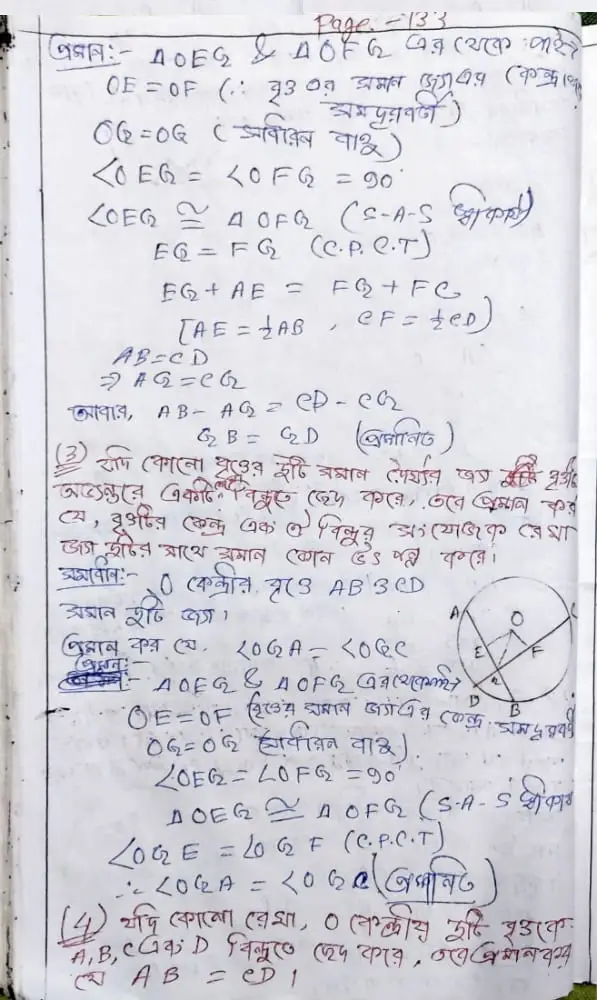 Page. - 133
প্রমান:- ΔOEG & ΔOFG এর থেকে পাই→
OE = OF (∵ বৃত্ত এর সমান জ্যা এর কেন্দ্র
সমদূরবর্তী)
OG = OG (সাধারন বাহু)
∠OEG = ∠OFG = 90°
∠OEG ≅ ΔOFG (S-A-S স্বীকার্য)
EG = FG (C.P.C.T)
EG + AE = FG + FC
[AE = ½AB , CF = ½CD)
AB = CD
⇒ AG = CG
আবার, AB - AG = CD - CG
GB = GD (প্রমানিত)
(3) যদি কোনো বৃত্তের দুটি সমান দৈর্ঘ্যের জ্যা বৃত্তের
অভ্যন্তরে একটি বিন্দুতে ছেদ করে, তবে প্রমান কর
যে, বৃত্তটির কেন্দ্র এবং ঐ বিন্দুর সংযোজক রেখা
জ্যা দুটির সাথে সমান কোন উৎপন্ন করে।
সমাধান:- O কেন্দ্রীয় বৃত্তে AB ও CD
সমান দুটি জ্যা।
প্রমান কর যে, ∠OGA = ∠OGC
প্রমান:-
ΔOEG & ΔOFG এর থেকে পাই→
OE = OF (বৃত্তের সমান জ্যা এর কেন্দ্র সমদূরবর্তী
OG = OG সাধারন বাহু)
∠OEG = ∠OFG = 90°
ΔOEG ≅ ΔOFG (S-A-S স্বীকার্য
∠OGE = ∠OGF (C.P.C.T)
∴ ∠OGA = ∠OGC (প্রমানিত)
A
C
O
E
F
G
D
B
(4) যদি কোনো রেখা, O কেন্দ্রীয় দুটি বৃত্তকে
A, B, C এবং D বিন্দুতে ছেদ করে, তবে প্রমান কর
যে AB = CD।